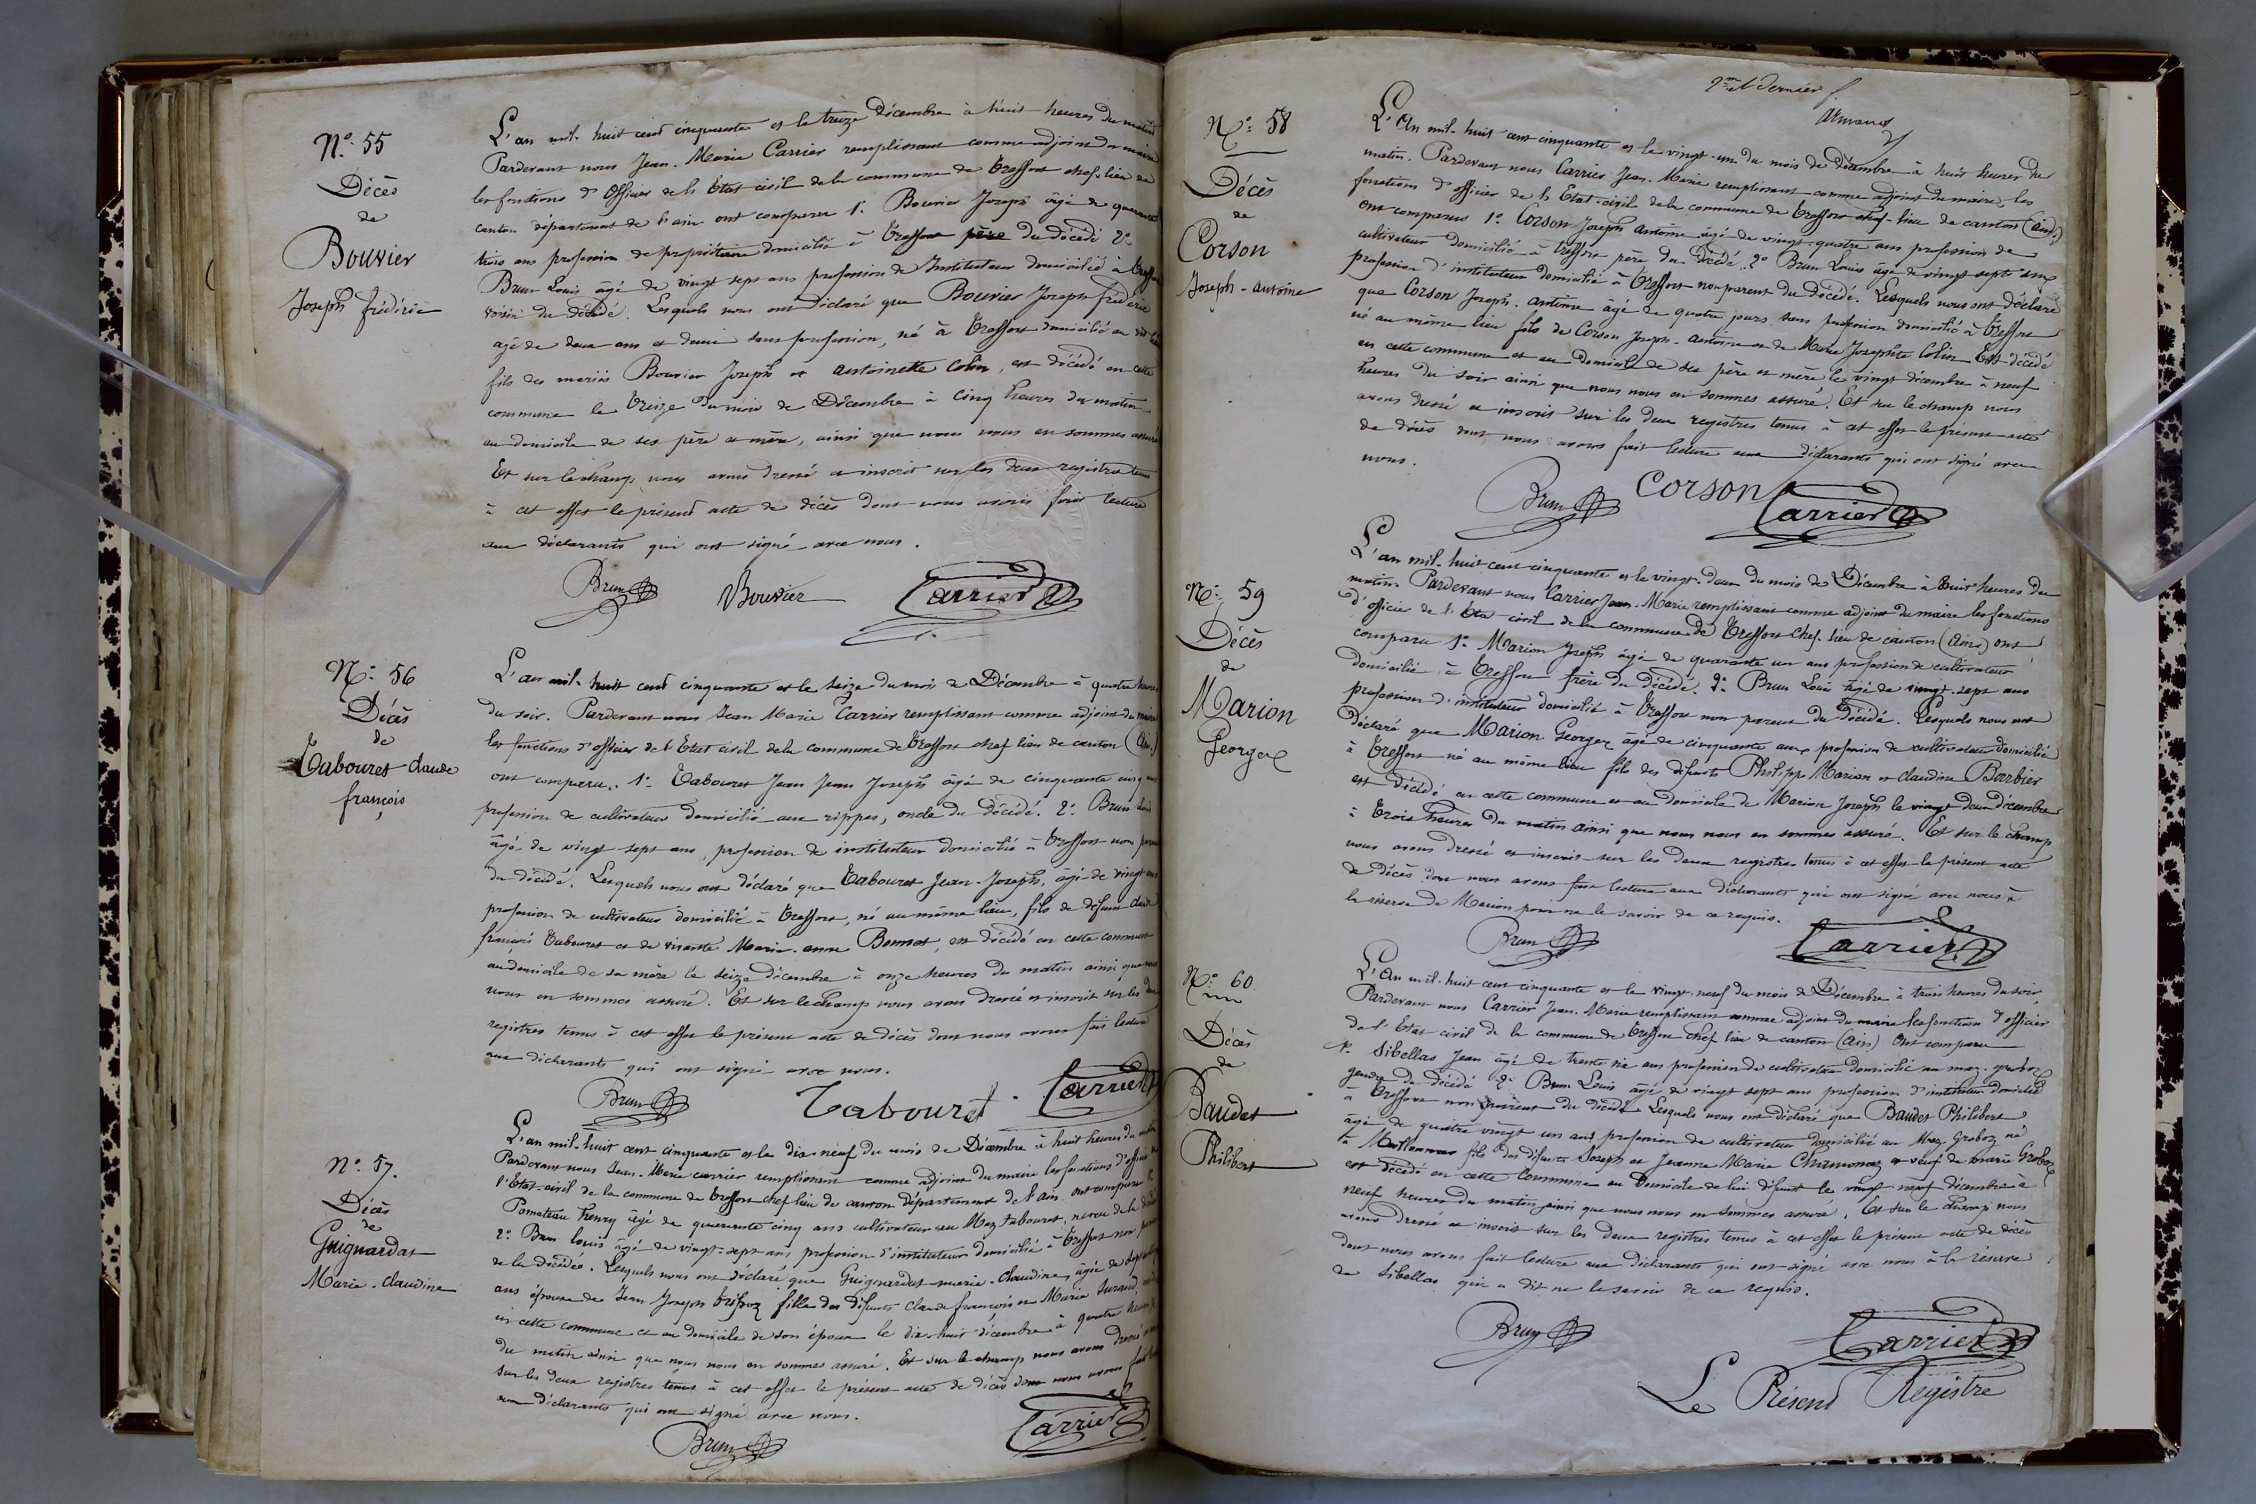 N.° 55
Décès
de
Bouvier
Joseph frédéric
L'an mil-huit cent cinquante et le treize Décembre à huit heures du matin
Pardevant nous Jean-Marie Carrier remplissant comme adjoint du maire
les fonctions d'Officier de l'Etat civil de la commune de Treffort chef-lieu de
canton département de l'ain ont comparu 1.° Bouvier Joseph âgé de quarante
trois ans profession de propriétaire domicilié à Treffort père du décédé 2.°
Brun Louis âgé de vingt sept ans profession de Instituteur domicilié à Treffort
voisin du décédé. Lesquels nous ont déclaré que Bouvier Joseph frédéric
agé de deux ans et demi sans profession, né à Treffort domicilié au dit
fils des mariés Bouvier Joseph et antoinette Colin, est décédé en cette
commune le treize du mois de Décembre à cinq heures du matin
au domicile de ses père et mère, ainsi que nous nous en sommes assuré
Et sur le champ nous avons dressé et inscrit sur les deux registres tenus
à cet effet le présent acte de décès dont nous avons fait lecture
aux déclarants qui ont signé avec nous.
Brun Bouvier Carrier
N.° 56
Décès
de
Tabouret claude
françois
L'an mil-huit cent cinquante et le seize du mois de Décembre à quatre heures
du soir. Pardevant nous Jean Marie Carrier remplissant comme adjoint du maire
les fonctions d'officier de l'Etat civil de la commune de Treffort chef lieu de canton (Ain.)
ont comparu. 1.° Tabouret Jean Jean Joseph âgé de cinquante cinq ans
profession de cultivateur domicilié aux rippes, oncle du décédé. 2.° Brun Louis
âgé de vingt sept ans, profession de instituteur domicilié à Treffort non parent
du décédé. Lesquels nous ont déclaré que Tabouret Jean-Joseph, âgé de vingt ans
profession de cultivateur domicilié à Treffort, né au même lieu, fils de défunt claude
françois Tabouret et de vivante Marie-anne Bonnet, est décédé en cette commune
au domicile de sa mère le seize décembre à onze heures du matin ainsi que nous
nous en sommes assuré. Et sur le champ nous avons dressé et inscrit sur les deux
registres tenus à cet effet le présent acte de décès dont nous avons fait lecture
aux déclarants qui ont signé avec nous.
Brun Tabouret Carrier
N.° 57.
Décès
de
Guignardat
Marie-claudine
L'an mil-huit cent cinquante et le dix-neuf du mois de Décembre à huit heures du matin
Pardevant nous Jean-Marie carrier remplissant comme adjoint du maire les fonctions d'officier de
l'Etat-civil de la commune de Treffort chef lieu de canton département de l'ain ont comparu 1.°
Pomateau henry âgé de quarante cinq ans cultivateur au Maz tabouret, neveu de la décédée
2.° Brun louis âgé de vingt-sept ans profession d'instituteur domicilié à Treffort non parent
de la décédée. Lesquels nous ont déclaré que Guignardat marie-Claudine, âgée de
ans épouse de Jean Joseph fille des défunts claude françois et Marie
en cette commune et au domicile de son époux le dix-huit décembre à quatre heures
du matin ainsi que nous nous en sommes assuré. Et sur le champ nous avons dressé
sur les deux registres tenus à cet effet le présent acte de décès dont nous avons fait
aux déclarants qui ont signé avec nous.
Brun Carrier
9.me et dernier
Armand
N.° 58
Décès
de
Corson
Joseph-antoine
L'An mil-huit cent cinquante et le vingt-un du mois de décembre à huit heures du
matin. Pardevant nous Carrier Jean-Marie remplissant comme adjoint du maire, les
fonctions d'officier de l'Etat-civil de la commune de Treffort chef-lieu de canton (Ain.)
ont comparus 1.° Corson Joseph antoine âgé de vingt-quatre ans profession de
cultivateur domicilié à treffort père du décédé. 2.° Brun Louis âgé de vingt septs ans
profession d'instituteur domicilié à Treffort non parent du décédé. Lesquels nous ont déclaré
que Corson Joseph-antoine âgé de quatre jours sans profession domicilié à Treffort
né au même lieu fils de Corson Joseph-antoine et de Marie Josephte Colin Est décédé
en cette commune et au domicile de ses père et mère le vingt décembre à neuf
heures du soir ainsi que nous nous en sommes assuré. Et sur le champ nous
avons dressé et inscrit sur les deux registres tenus à cet effet le présent acte
de décès dont nous avons fait lecture aux déclarants qui ont signé avec
nous.
Brun Corson Carrier
N.° 59
Décès
de
Marion
George
L'an mil-huit cent cinquante et le vingt-deux du mois de Décembre à huit heures du
matin. Pardevant nous Carrier Jean-Marie remplissant comme adjoint du maire les fonctions
d'officier de l'Etat civil de la commune de Treffort chef-lieu de canton (Ain) ont
comparu 1.° Marion Joseph âgé de quarante un ans profession de cultivateur
domicilié à Treffort frère du décédé. 2.° Brun Louis âgé de vingt-sept ans
profession d'instituteur domicilié à Treffort non parent du décédé. Lesquels nous ont
déclaré que Marion George âgé de cinquante ans profession de cultivateur domicilié
à Treffort né au même lieu fils des défunts Philippe Marion et claudine Barbier
est décédé en cette commune et au domicile de Marion Joseph le vingt deux décembre
à trois heures du matin ainsi que nous nous en sommes assuré. Et sur le champ
nous avons dressé et inscrit sur les deux registres tenus à cet effet le présent acte
de décès dont nous avons fait lecture aux déclarants qui ont signé avec nous à
la réserve de Marion pour ne le savoir de ce requis.
Brun Carrier
N.° 60
Décès
de
Baudet
Philibert
L'An mil-huit cent cinquante et le vingt-neuf du mois de Décembre à trois heures du soir
Pardevant nous Carrier Jean-Marie remplissant comme adjoint du maire les fonctions d'officier
de l'Etat civil de la commune de Treffort chef lieu de canton (Ain) Ont comparu
1.° Sibellas Jean âgé de trente six ans profession de cultivateur domicilié au maz-groboz
gendre du décédé 2.° Brun Louis âgé de vingt sept ans profession d'instituteur domicilié
à Treffort non parent du décédé Lesquels nous ont déclaré que Baudet Philibert
âgé de quatre vingt un ans profession de cultivateur domicilié au Maz-Groboz né
à fils des défunts Joseph et Jeanne Marie et veuf de marie Groboz
est décédé en cette commune au Domicile de lui défunt le vingt neuf décembre à
neuf heures du matin ainsi que nous nous en sommes assuré. Et sur le champ nous
avons dressé et inscrit sur les deux registres tenus à cet effet le présent acte de décès
dont nous avons fait lecture aux déclarants qui ont signé avec nous à la réserve
de Sibellas qui a dit ne le savoir de ce requis.
Brun Carrier
Le Présent Registre